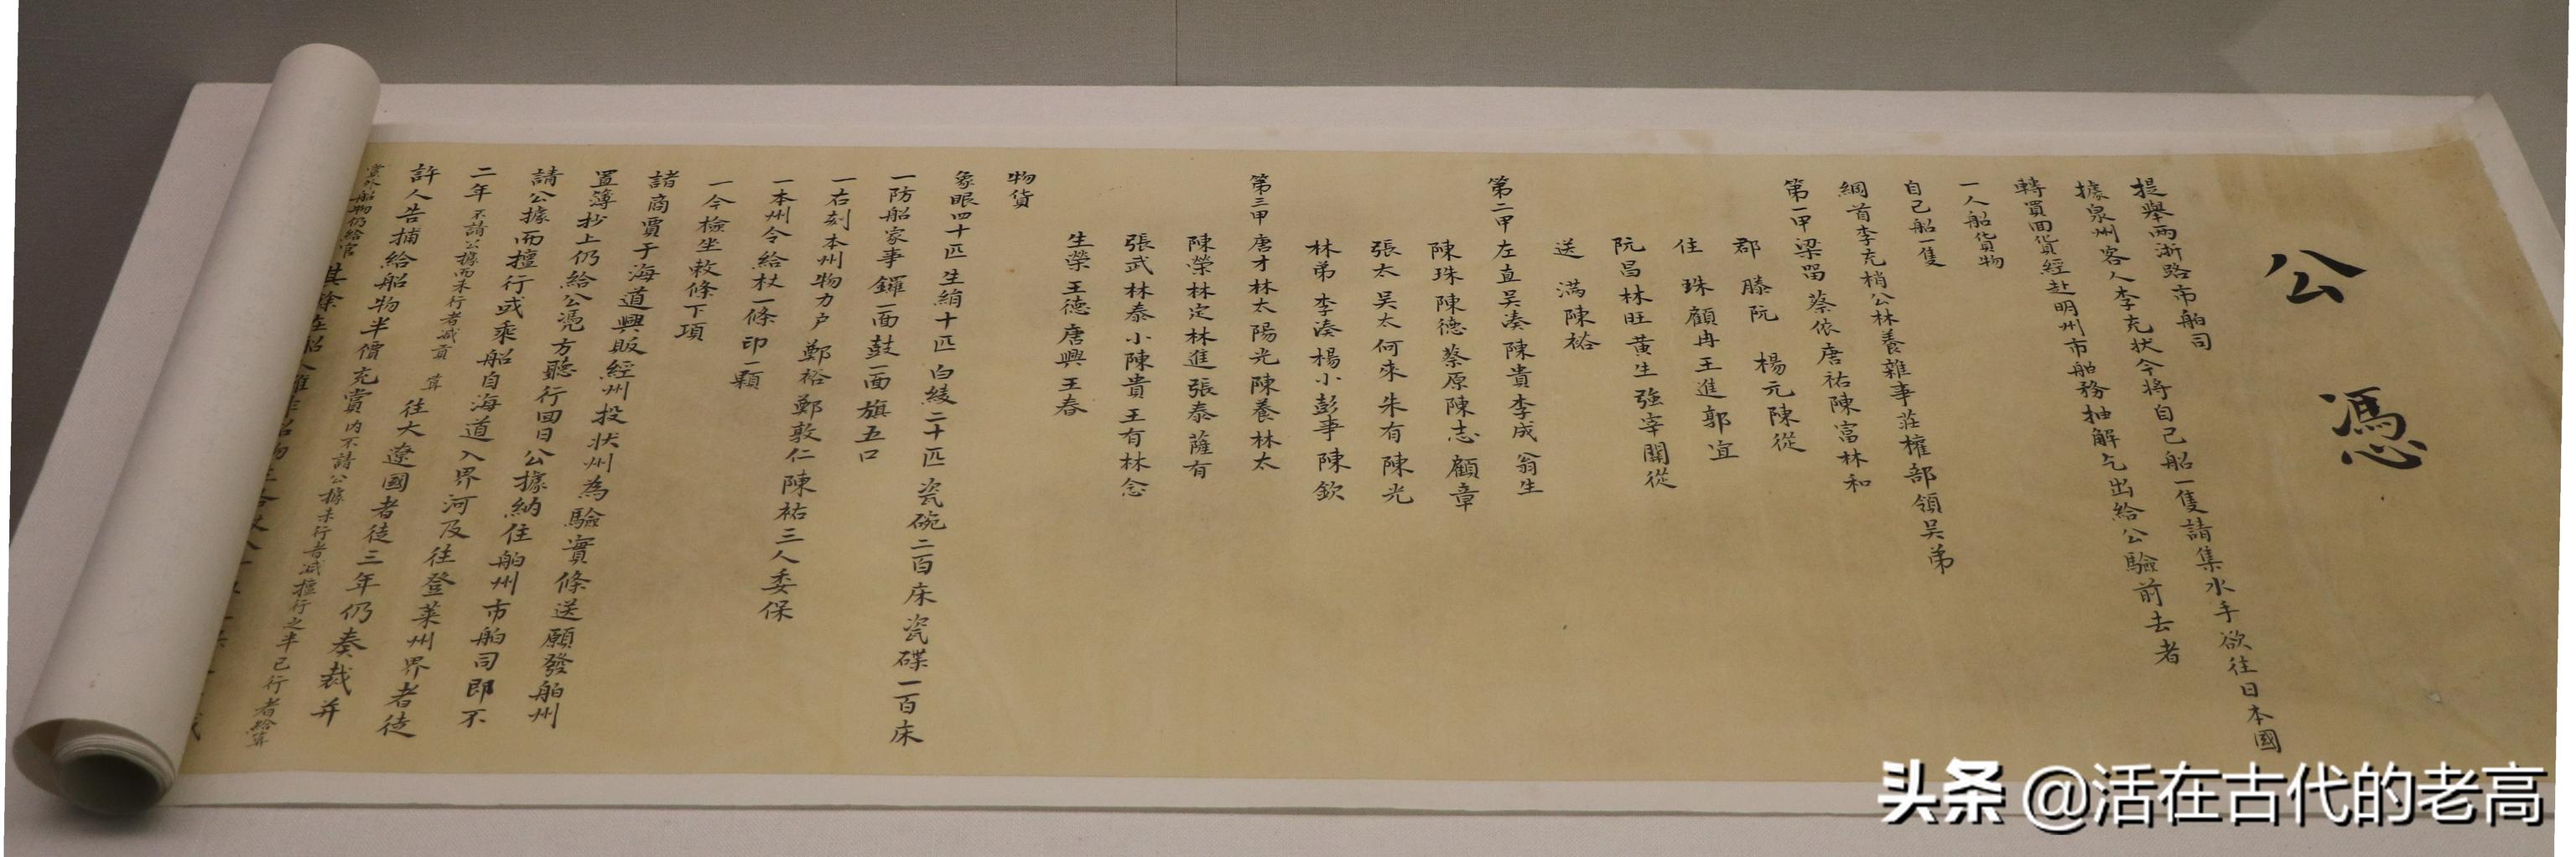 公 憑
提舉兩浙路市舶司
據泉州客人李充狀今將自己船一隻請集水手欲往日本國
轉買回貨經赴明州市舶務抽解乞出給公驗前去者
一人船貨物
自己船一隻
綱首李充梢公林養雜事莊權部領吳弟
第一甲梁留蔡依唐祐陳富林和
郡滕阮 楊元陳從
住珠顧冉王進郭宜
阮昌林旺黃生強宰關從
送 滿陳裕
第二甲左直吳湊陳貴李成翁生
陳珠陳德蔡原陳志顧章
張太吳太何來朱有陳光
林弟李湊楊小彭事陳欽
第三甲唐才林太陽光陳養林太
陳榮林定林進張泰薩有
張武林泰小陳貴王有林念
生榮王德唐興王春
物貨
象眼四十匹生絹十匹白綾二十匹瓷碗二百床瓷碟一百床
一防船家事鑼一面鼓一面旗五口
一右刻本州物力户鄭裕鄭敦仁陳祐三人委保
一本州令給杖一條印一顆
一今檢坐敕條下項
諸商賈于海道興販經州投狀州為驗實條送願發舶州
置簿抄上仍給公憑方聽行回日公據納住舶州市舶司即不
請公據而擅行或乘船自海道入界河及往登萊州界者徒
二年不請公據而未行者減貳等往大遼國者徒三年仍奏裁并
許人告捕給船物半價充賞內不請公據未行者減擅行之半已行者給賞
賞外船物仍給官其餘在船人
头条 @活在古代的老高